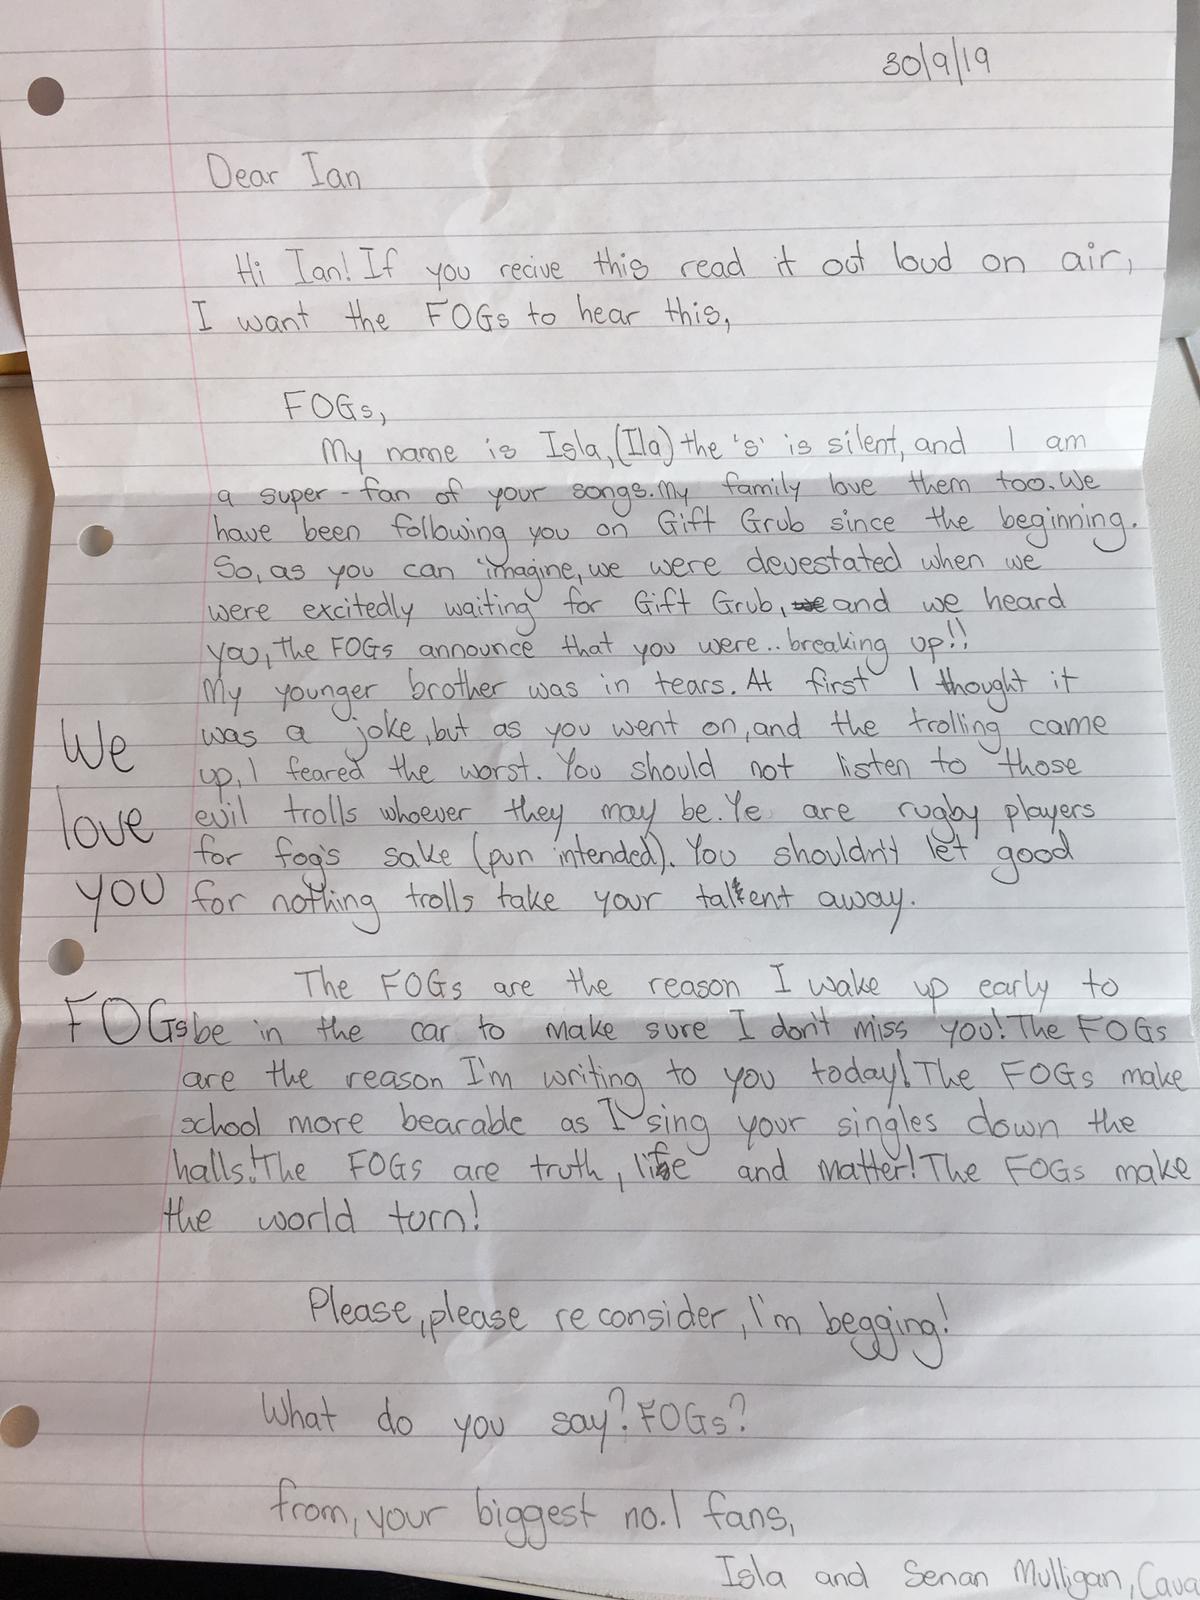 30/9/19
Dear Ian
Hi Ian! If you recive this read it out loud on air,
I want the FOGs to hear this,
FOGs,
My name is Isla, (Ila) the 's' is silent, and I am
a super-fan of your songs. My family love them too. We
have been following you on Gift Grub since the beginning.
So, as you can imagine, we were devestated when we
were excitedly waiting for Gift Grub, we and we heard
you, the FOGs announce that you were.. breaking up!!
My younger brother was in tears. At first I thought it
was a joke, but as you went on, and the trolling came
up, I feared the worst. You should not listen to those
evil trolls whoever they may be. Ye are rugby players
for fog's sake (pun intended). You shouldn't let good
for nothing trolls take your talent away.
The FOGs are the reason I wake up early to
be in the car to make sure I don't miss you! The FOGs
are the reason I'm writing to you today! The FOGs make
school more bearable as I sing your singles down the
halls! The FOGs are truth, life and matter! The FOGs make
the world turn!
Please, please reconsider, I'm begging!
What do you say? FOGs?
from, your biggest no.1 fans,
Isla and Senan Mulligan, Cava
We
love
you
FOGs